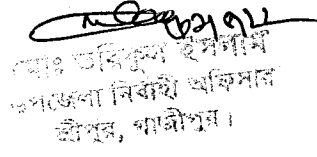 মোঃ তরিকুল ইসলাম
উপজেলা নির্বাহী অফিসার
শ্রীপুর, গাজীপুর।